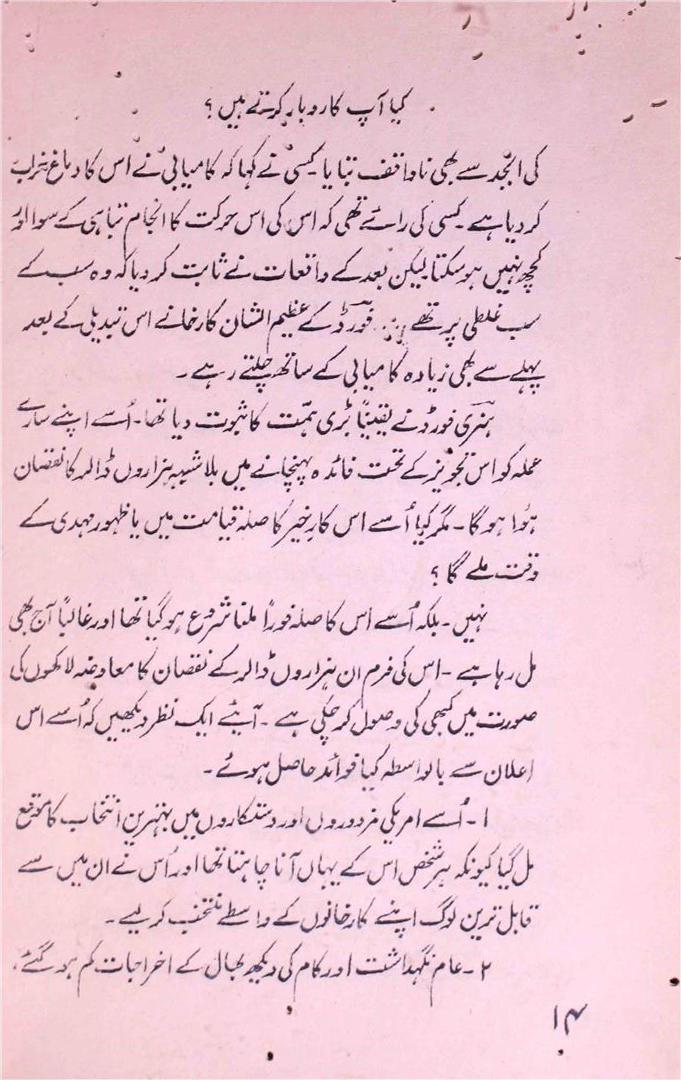 کیا آپ کاروبار کرتے ہیں ؟
کی ابجد سے بھی ناواقف بتایا کیسی نے کہا کہ کامیابی نے اس کا دماغ خراب
کر دیا ہے ۔ کسی کی رائے تھی کہ اس کی اس حرکت کا انجام تباہی کے سوا اور
کچھ نہیں ہو سکتا لیکن بعد کے واقعات نے ثابت کر دیا کہ وہ سب کے
سب غلطی پر تھے فورڈ کے عظیم الشان کارخانے اس تبدیلی کے بعد
پہلے سے بھی زیادہ کامیابی کے ساتھ چلتے رہے ۔
ہنری فورڈ نے یقیناً بڑی ہمت کا ثبوت دیا تھا ۔ اُسے اپنے سارے
عملہ کو اس تجویز کے تحت فائدہ پہنچانے میں بلا شبہ ہزاروں ڈالر کا نقصان
ہُوا ہو گا ۔ مگر کیا اُسے اس کارِ خیر کا صلہ قیامت میں یا ظہور مہدی کے
وقت ملے گا ؟
نہیں ۔ بلکہ اُسے اس کا صلہ فوراً ملنا شروع ہو گیا تھا اور غالباً آج بھی
مل رہا ہے ۔ اس کی فرم ان ہزاروں ڈالر کے نقصان کا معاوضہ لاکھوں کی
صورت میں کبھی کی وصول کر چکی ہے ۔ آیئے ایک نظر دیکھیں کہ اُسے اس
اعلان سے بالواسطہ کیا فوائد حاصل ہوئے ۔
۱ ۔ اُسے امریکی مزدوروں اور دستکاروں میں بہترین انتخاب کا موقع
مل گیا کیونکہ ہر شخص اس کے یہاں آنا چاہتا تھا اور اُس نے ان میں سے
قابل ترین لوگ اپنے کارخانوں کے واسطے منتخب کر لیے ۔
۲ ۔ عام نگہداشت اور کام کی دیکھ بھال کے اخراجات کم ہو گئے ،
۱۴